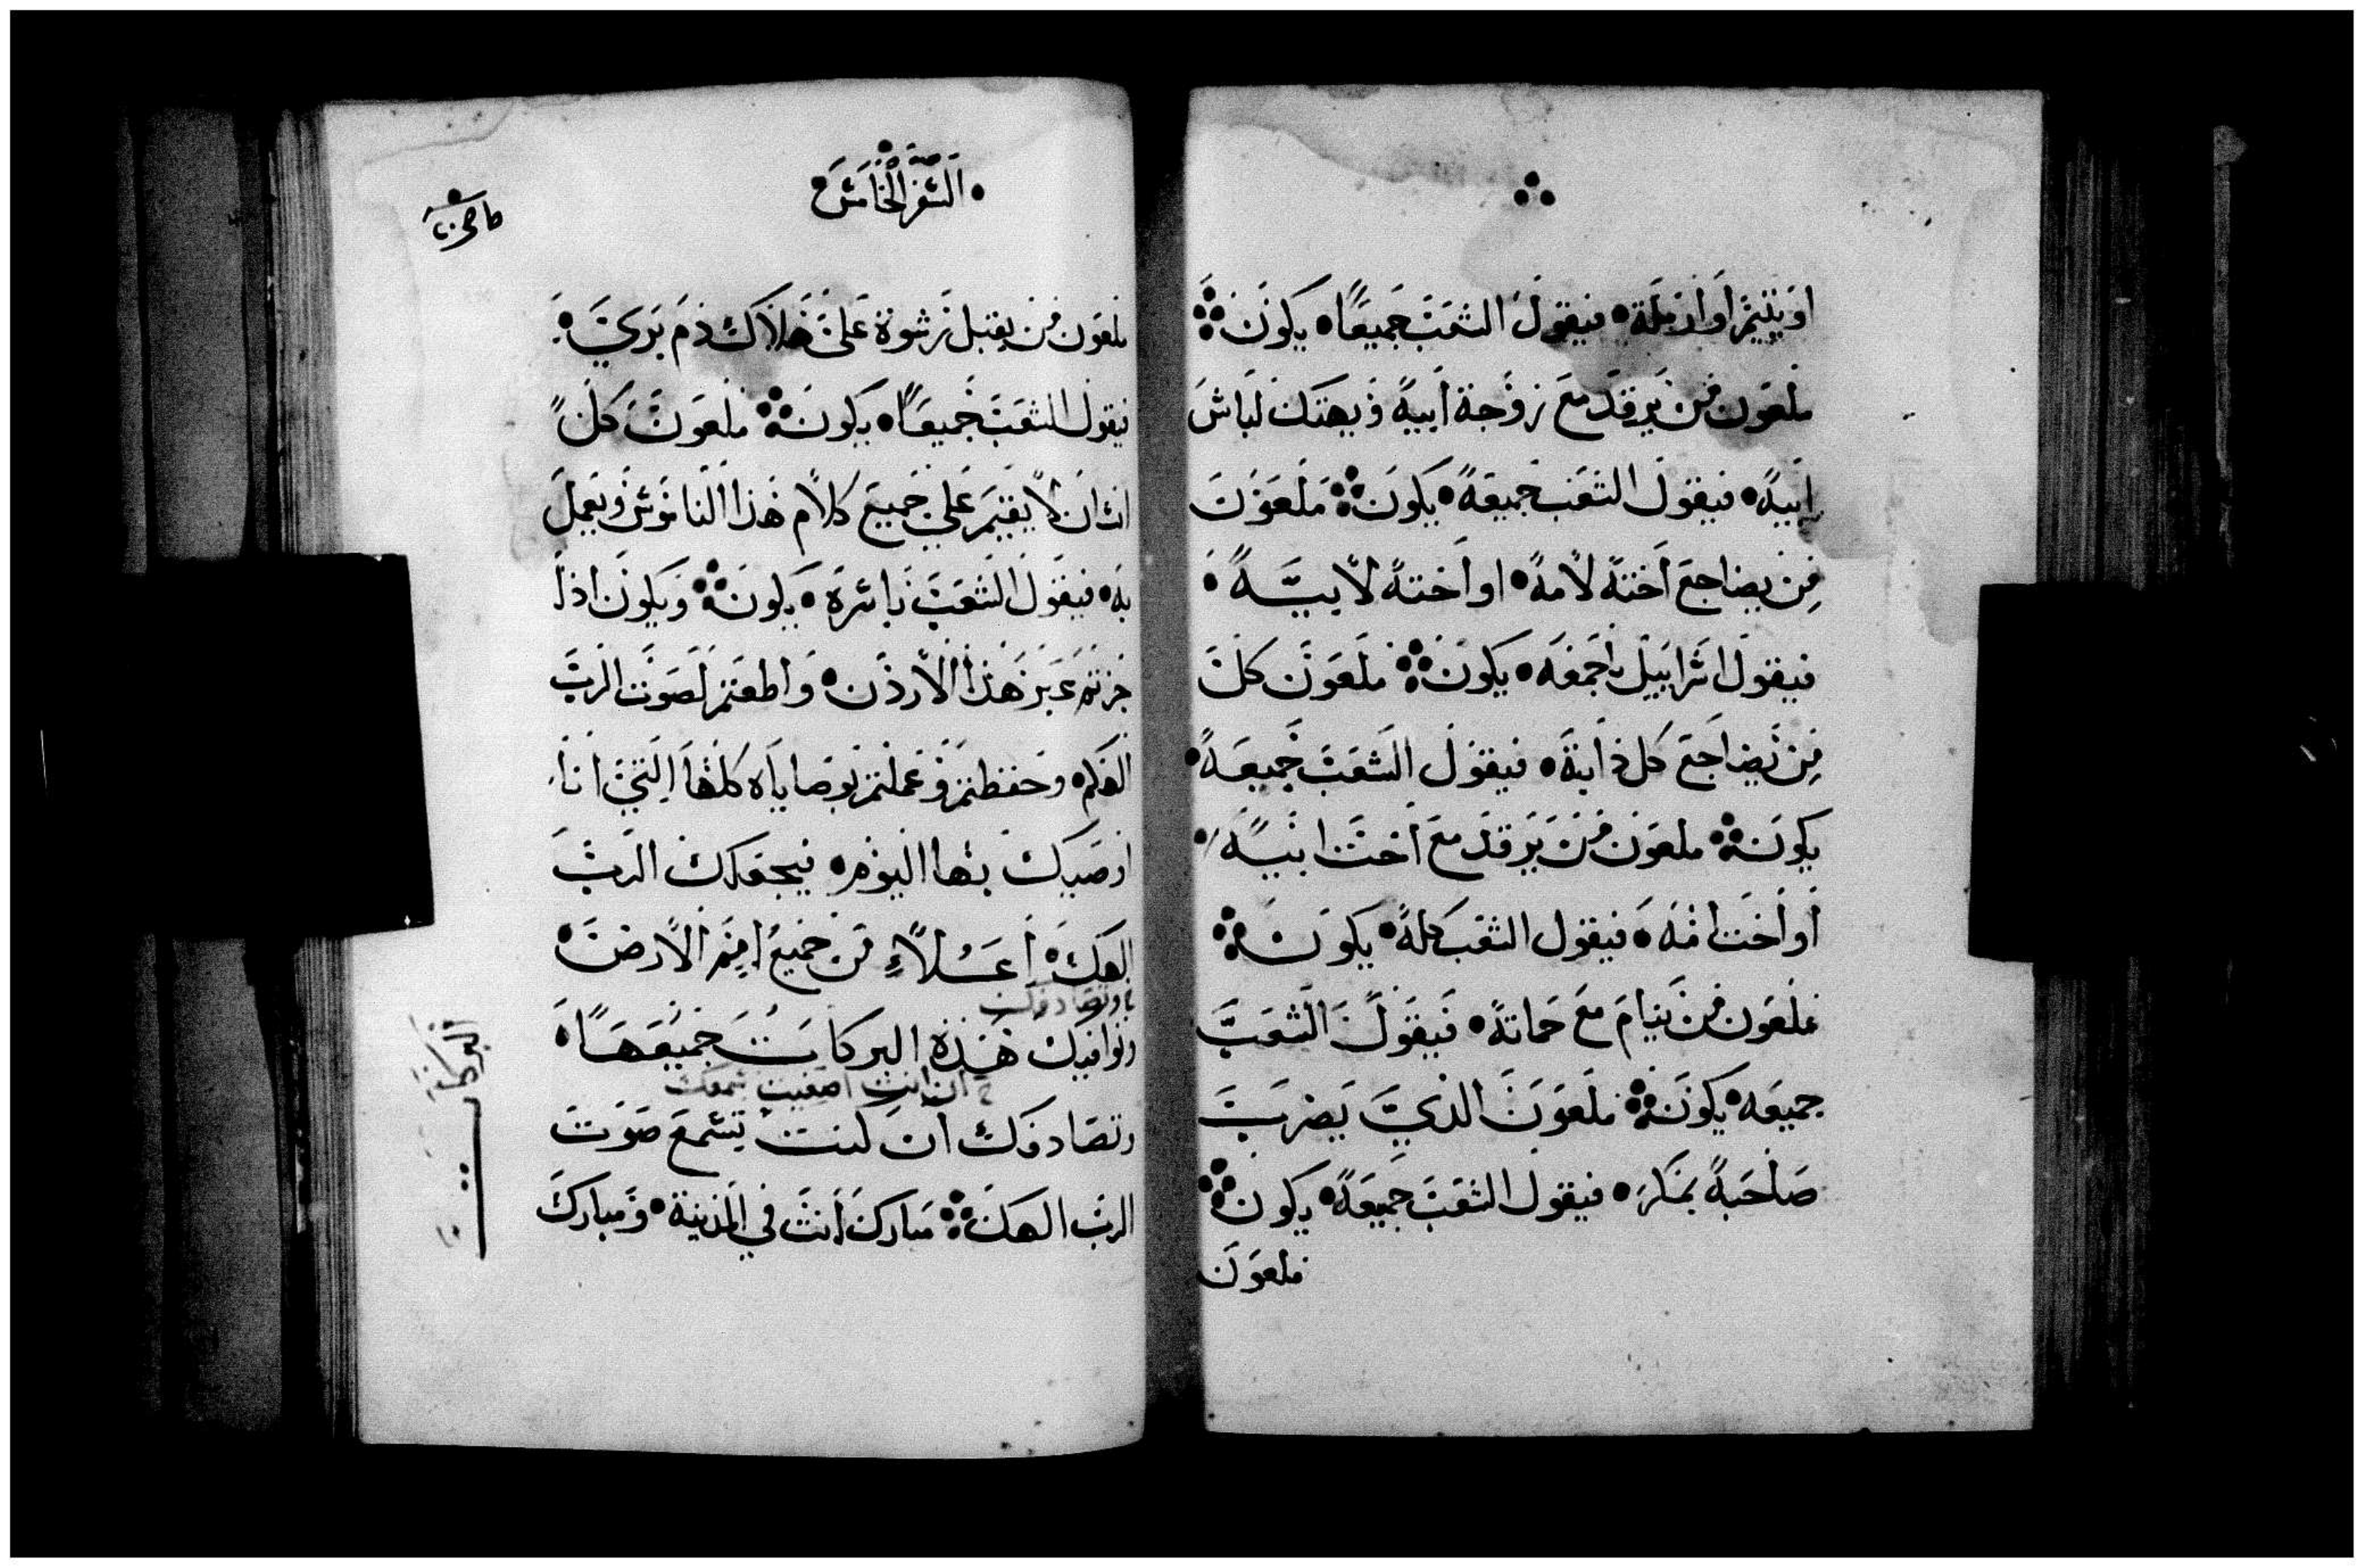 او يتيم او ارملة • فيقول الشعب جميعا • يكون ⁘
ملعون من يرقد مع زوجة ابيه ويهتك لباس
ابيه • فيقول الشعب جميعه • يكون ⁘ ملعون
من يضاجع اخته لامه • او اخته لابيه •
فيقول اسراييل باجمعه • يكون ⁘ ملعون كل
من يضاجع كل دابة • فيقول الشعب جميعه •
يكون ⁘ ملعون من يرقد مع اخت ابيه •
او اخت امه • فيقول الشعب كله • يكون ⁘
ملعون من ينام مع حماته • فيقول الشعب
جميعه • يكون ⁘ ملعون الذي يضرب
صاحبه بمكر • فيقول الشعب جميعه • يكون ⁘
ملعون
• السفر الخامس •
ملعون من يقبل رشوة على هلاك دم بري •
فيقول الشعب جميعا • يكون ⁘ ملعون كل
انسان لا يقيم على جميع كلام هذا الناموس ويعمل
به • فيقول الشعب باسره • يكون ⁘ ويكون اذا
جزتم عبر هذا الاردن • واطعتم لصوت الرب
الهكم • وحفظتم وعملتم بوصاياه كلها التي انا
اوصيك بها اليوم • فيجعلك الرب
الهك • اعلاء من جميع امم الارض •
وتصادفك
وتوافيك هذه البركات جميعها •
ان انت اصغيت بسمعك
وتصادفك ان كنت تسمع صوت
الرب الهك ⁘ مبارك انت في المدينة • ومبارك